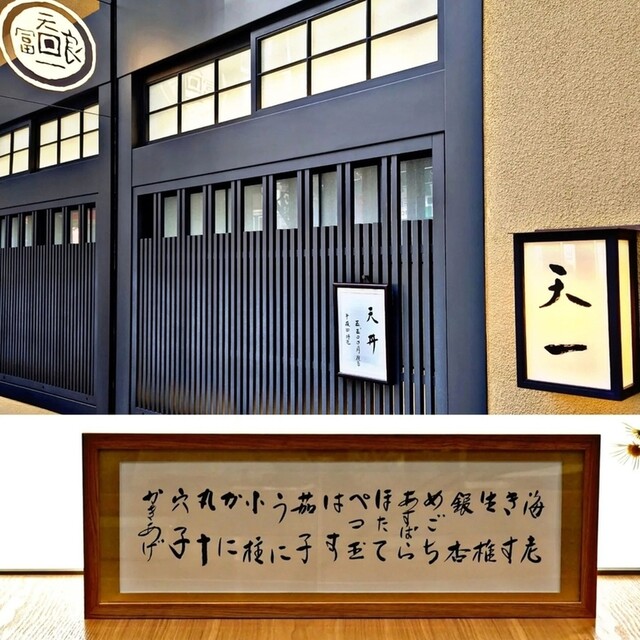 天
富良
天丼
天一
海老
きす
生椎
銀杏
めごち
あすぱら
ほたて
ぺつ玉
はす
茄子
うに
小柱
かに
丸十
穴子
かきあげ